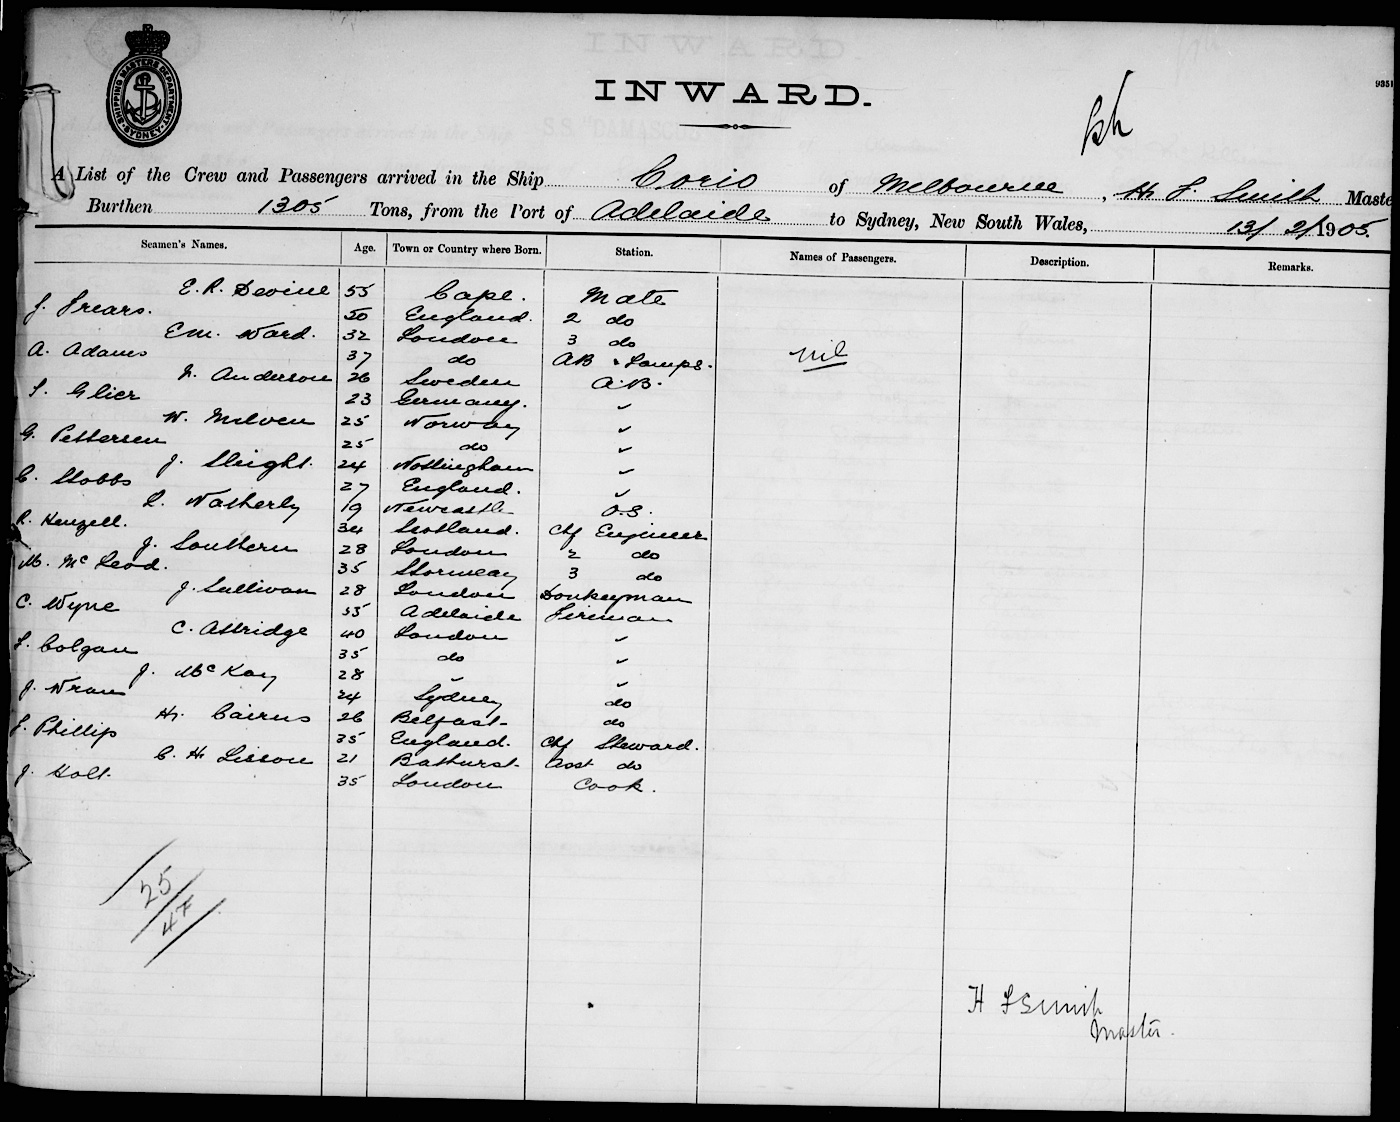 SHIPPING MASTERS DEPARTMENT SYDNEY
INWARD.
9351
A List of the Crew and Passengers arrived in the Ship Corio of Melbourne, H. F. Smith Maste
Burthen 1305 Tons, from the Port of Adelaide to Sydney, New South Wales, 13/ 2/1905.
Seamen's Names. Age. Town or Country where Born. Station. Names of Passengers. Description. Remarks.
E. R. Devine 55 Cape. Mate
J. Frears. 50 England. 2 do
E M. Ward. 32 London 3 do
A. Adams 37 do AB & Lamps. nil
J. Anderson 26 Sweden A.B.
S. Glier 23 Germany. "
W. Milven 25 Norway "
G. Pettersen 25 do "
J. Sleight. 24 Nottingham "
C. Stobbs 27 England. "
R. Watherly 19 Newcastle O.S.
R. Henzell. 34 Scotland. Chf Engineer
J. Southern 28 London 2 do
M. McLeod. 35 Stornway 3 do
J. Sullivan 28 London Donkeyman
C. Wyne 35 Adelaide Fireman
C. Attridge 40 London "
T. Colgan 35 do "
J. McKay 28 " "
J. Wran 24 Sydney do
H. Cairns 26 Belfast do
J. Phillip 35 England. Chf Steward.
C. H. Lisson 21 Bathurst Asst do
J. Holt. 35 London Cook.
25
47
H F Smith
Master.